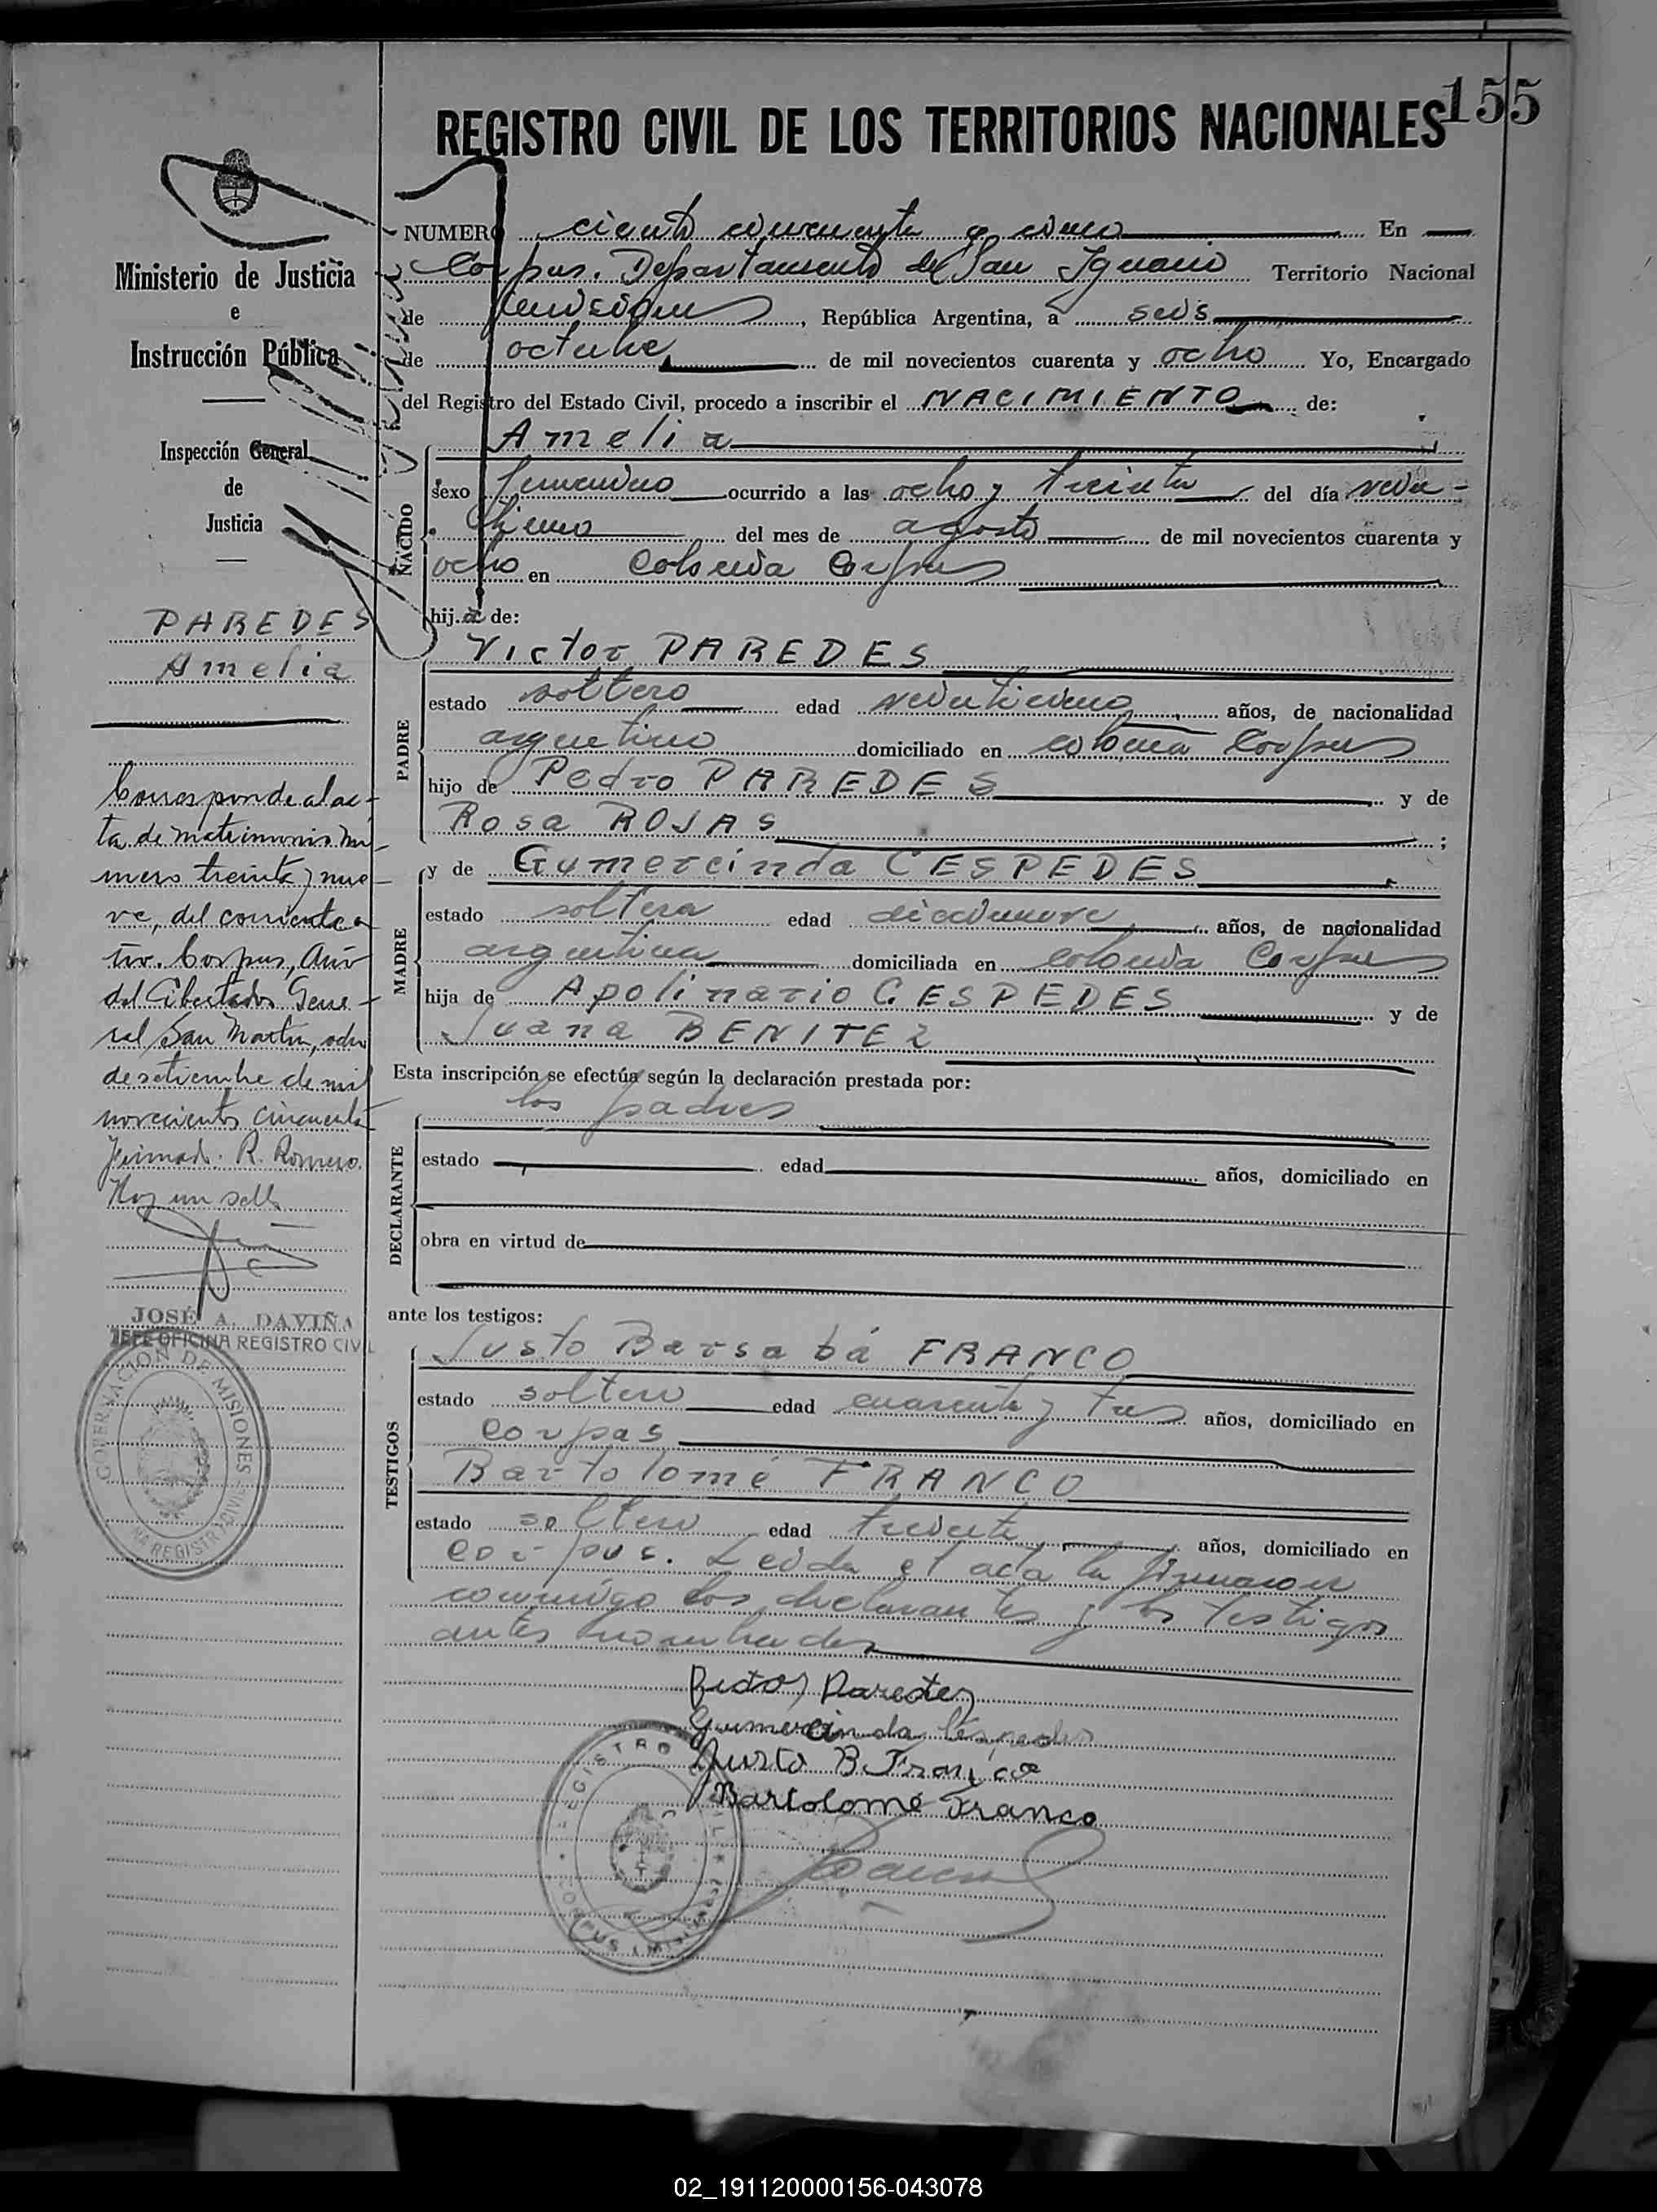 155
REGISTRO CIVIL DE LOS TERRITORIOS NACIONALES
Ministerio de Justicia
e
Instrucción Pública
Inspección General
de
Justicia
PAREDES
Amelia
Corresponde al ac-
ta de matrimonio nu-
mero treinta y nue-
ve, del corriente
Corpus, Año
del Libertador Gene-
ral San Martín, ocho
de setiembre de mil
novecientos cincuenta
Firmado. R. Romero.
Hay un sello
JOSÉ A. DAVIÑA
JEFE OFICINA REGISTRO CIVIL
GOBERNACION DE MISIONES
NUMERO ciento cincuenta y cinco En
Corpus. Departamento de San Ignacio Territorio Nacional
de Misiones, República Argentina, a seis
de octubre de mil novecientos cuarenta y ocho Yo, Encargado
del Registro del Estado Civil, procedo a inscribir el NACIMIENTO de:
NACIDO
Amelia
sexo femenino ocurrido a las ocho y treinta del día vein-
tiuno del mes de agosto de mil novecientos cuarenta y
ocho en Colonia Corpus
hij.a de:
PADRE
Victor PAREDES
estado soltero edad veintiuno años, de nacionalidad
argentino domiciliado en colonia Corpus
hijo de Pedro PAREDES y de
Rosa ROJAS ;
MADRE
y de Gumercinda CESPEDES
estado soltera edad diecinueve años, de nacionalidad
argentina domiciliada en colonia Corpus
hija de Apolinario CESPEDES y de
Juana BENITEZ
Esta inscripción se efectúa según la declaración prestada por:
DECLARANTE
los padres
estado edad años, domiciliado en
obra en virtud de
ante los testigos:
TESTIGOS
Justo Barsabá FRANCO
estado soltero edad cuarenta y tres años, domiciliado en
Corpus
Bartolomé FRANCO
estado soltero edad treinta años, domiciliado en
Corpus. Leida el acta la firmaron
conmigo los declarantes y los testigos
antes nombrados
Victor Paredez
Gumercinda Cespedes
Justo B. Franco
Bartolomé Franco
REGISTRO CIVIL
CORPUS
02_191120000156-043078